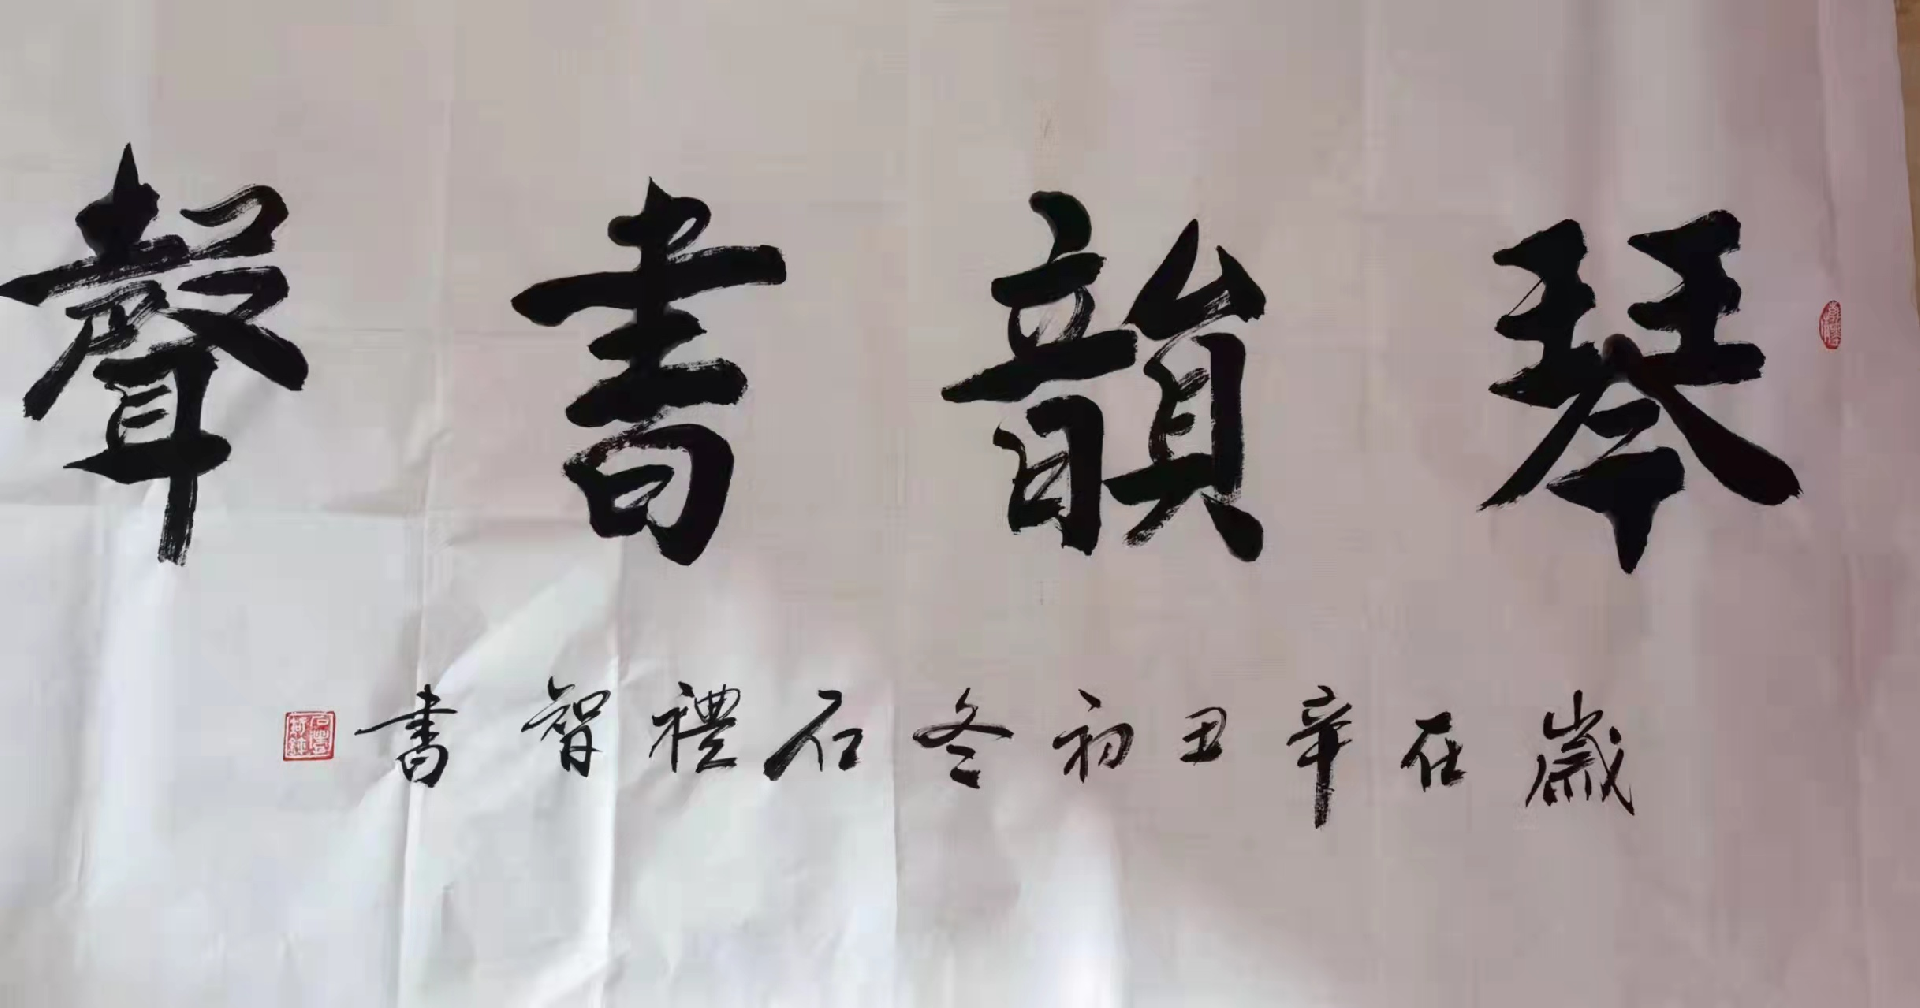 琴韻書聲
歲在辛丑初冬石禮智書